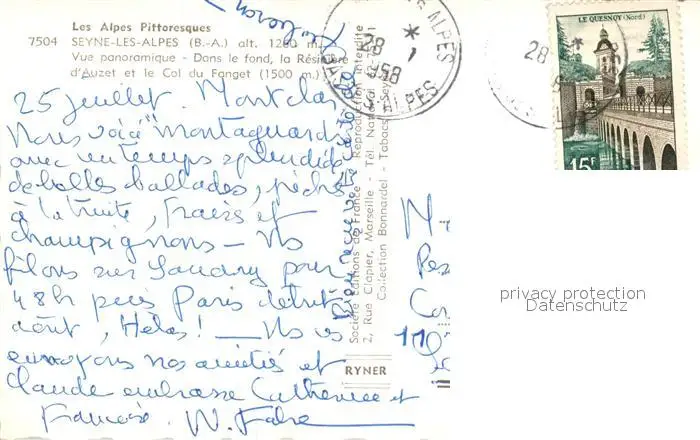 Les Alpes Pittoresques
7504 SEYNE-LES-ALPES (B.-A.) alt. 1260 m.
Vue panoramique - Dans le fond, la Résinière
d'Auzet et le Col du Fanget (1500 m.)
25 juillet. Montclar
Nous voici "montagnards"
avec un temps splendide
de belles ballades, pêche
à la truite, fraises et
champignons - Ns
filons sur Sanary pour
48h puis Paris début
août, Hélas! - Ns vs
envoyons nos amitiés et
Claude embrasse Catherine et
Françoise.
Société Editions de France - Reproduction interdite
2, Rue Clapier, Marseille - Tél. National
Collection Bonnardel - Tabacs - Seyne
RYNER
ALPES
28
1958
ALPES
LE QUESNOY (Nord)
28
15F
privacy protection
Datenschutz